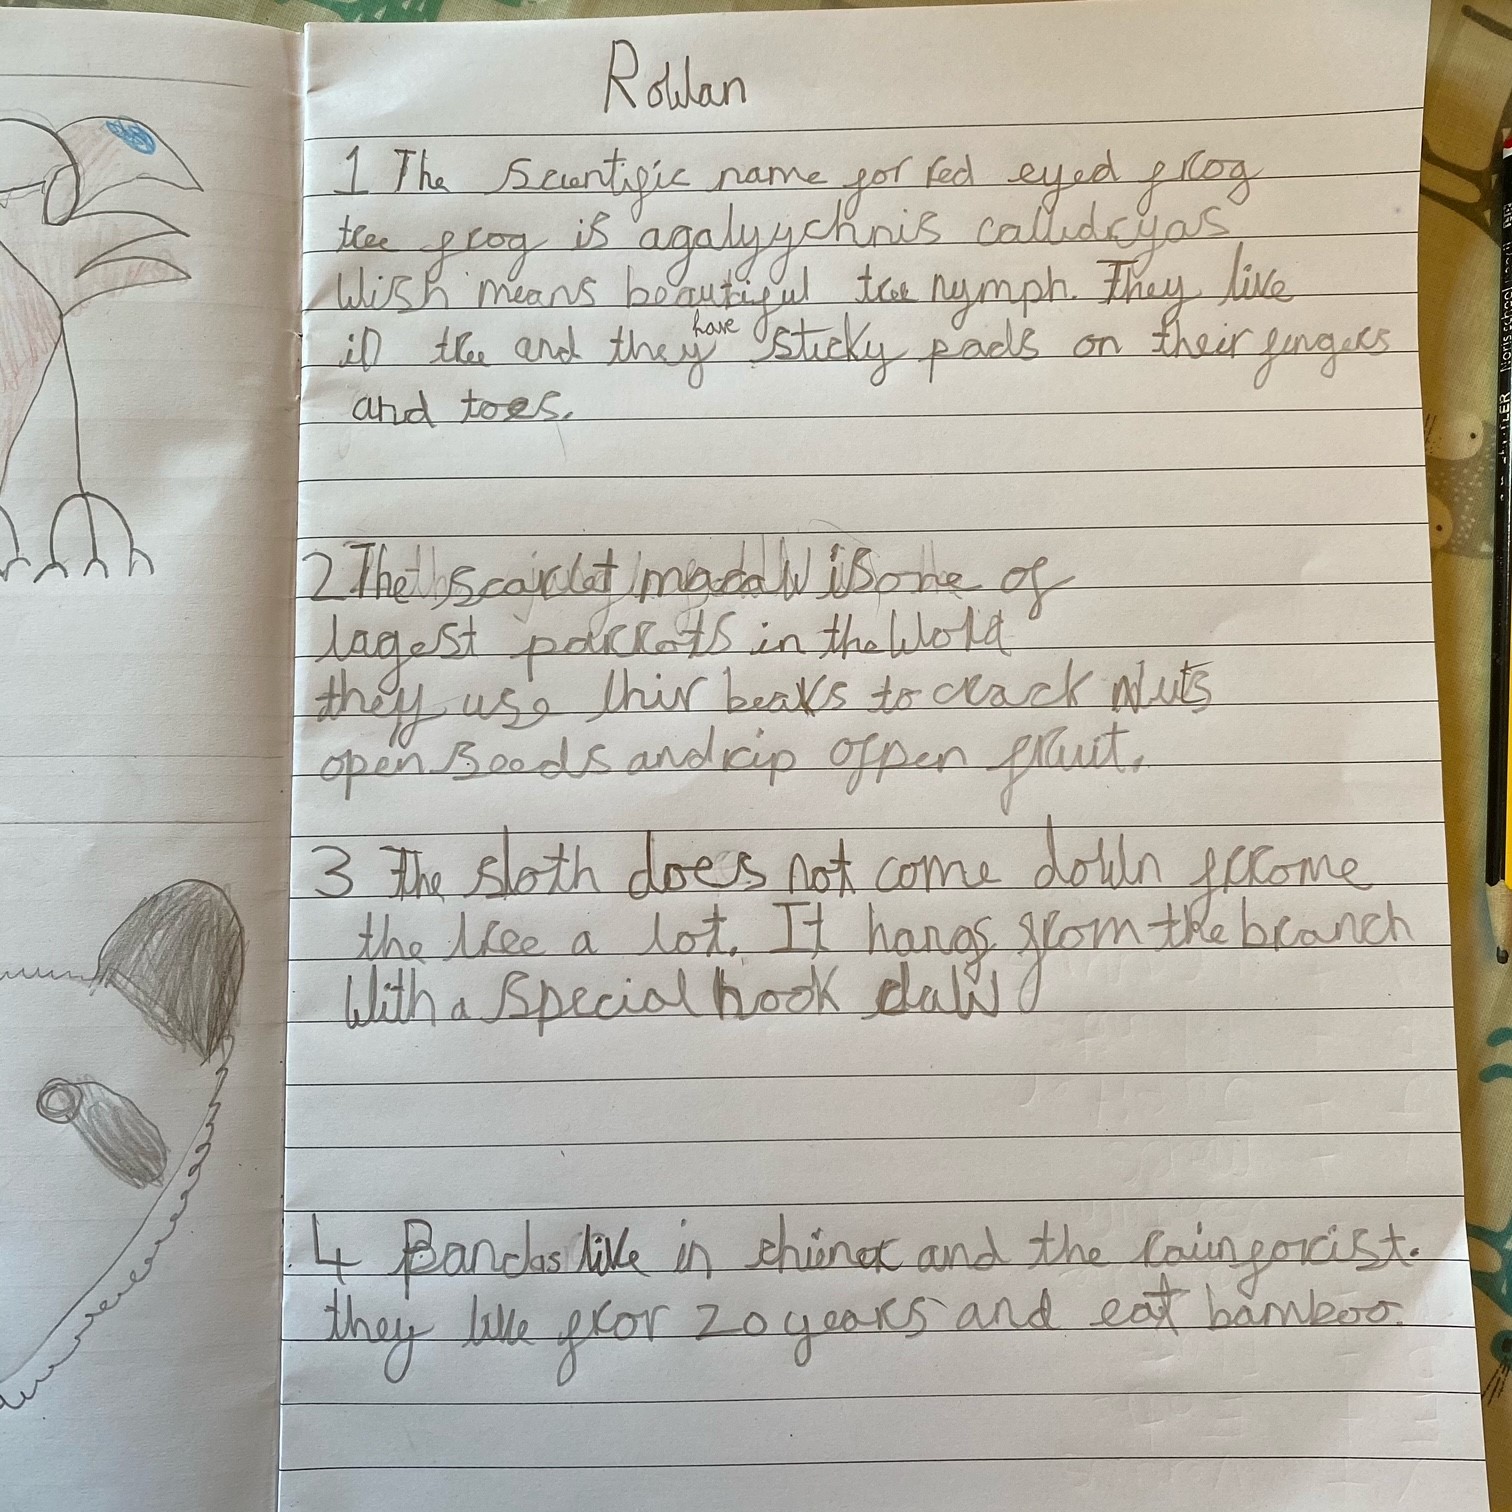 Rowan
1 The scientific name for red eyed frog
tree frog is agalyychnis callidryas
Wish means beautiful tree nymph. They live
in tree and they have sticky pads on their fingers
and toes.
2 The scarlet macaw is one of
lagest parrots in the world
they use thir beaks to crack nuts
open seeds and rip ofpen fruit.
3 The sloth does not come down frrome
the tree a lot. It hangs from the branch
With a special hook claw
4 Pandas live in chiner and the rainforist.
they live fror 20 years and eat bamboo.
STAEDTLER Noris school